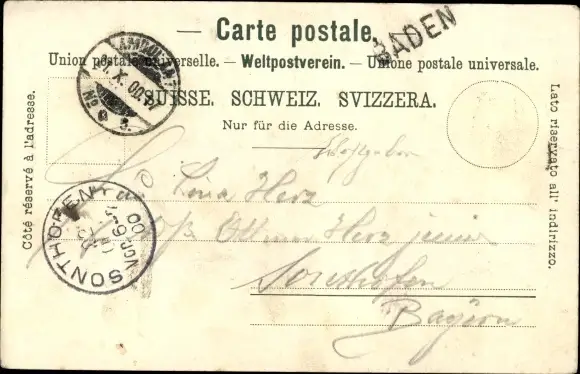 — Carte postale.
BADEN
Union postale universelle. — Weltpostverein. — Unione postale universale.
AMBULANT
1.X.00
No 3.
SUISSE. SCHWEIZ. SVIZZERA.
Nur für die Adresse.
Côté réservé à l'adresse.
Lato riservato all' indirizzo.
Lina Herz
Herz junior
Sonthofen
Bayern
SONTHOFEN
VOR. 6-7
00